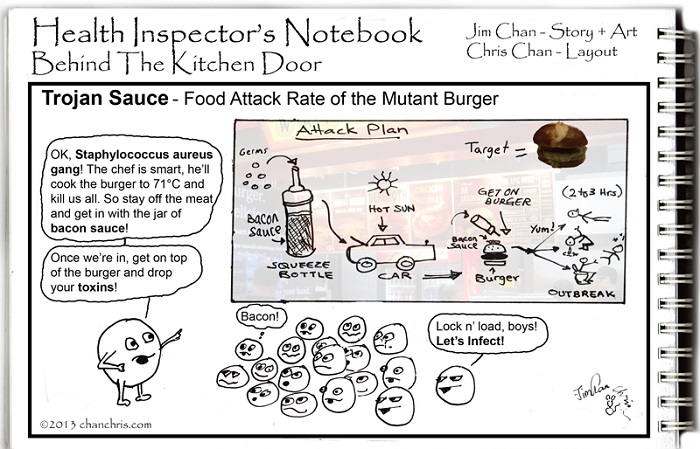 Health Inspector's Notebook
Behind The Kitchen Door
Jim Chan - Story + Art
Chris Chan - Layout
Trojan Sauce - Food Attack Rate of the Mutant Burger
OK, Staphylococcus aureus
gang! The chef is smart, he'll
cook the burger to 71°C and
kill us all. So stay off the meat
and get in with the jar of
bacon sauce!
Once we're in, get on top
of the burger and drop
your toxins!
Attack Plan
Germs
Bacon
Sauce
SQUEEZE
BOTTLE
HOT SUN
CAR
Target =
GET ON
BURGER
Bacon
Sauce
Burger
(2 to 3 Hrs)
Yum!
OUTBREAK
Bacon!
Lock n' load, boys!
Let's Infect!
Jim Chan
©2013 chanchris.com